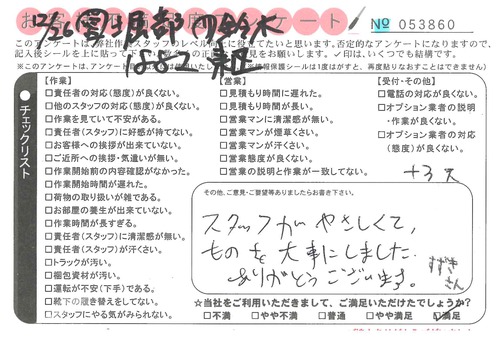 アンケート
№ 053860
12/26
このアンケートは、弊社作業スタッフのレベル向上に役立てたいと思います。否定的なアンケートになりますので、
記入後シールを上に貼って下
印は、いくつでも結構です。
※このアンケートは、
情報保護シールは1度はがすと、再度貼りなおすことはできません)
チェックリスト
【作業】
□責任者の対応(態度)が良くない。
□他のスタッフの対応(態度)が良くない。
□作業を見ていて不安がある。
□責任者(スタッフ)に好感が持てない。
□お客様への挨拶が出来ていない。
□ご近所への挨拶・気遣いが無い。
□作業開始前の内容確認がなかった。
□作業開始時間が遅れた。
□荷物の取り扱いが雑である。
□お部屋の養生が出来ていない。
□作業時間が長すぎる。
□責任者(スタッフ)に清潔感が無い。
□責任者(スタッフ)が汗くさい。
□トラックが汚い。
□梱包資材が汚い。
□運転が不安(下手)である。
□靴下の履き替えをしてない。
□スタッフにやる気がみられない。
【営業】
□見積もり時間に遅れた。
□見積もり時間が長い。
□営業マンに清潔感が無い。
□営業マンが煙草くさい。
□営業マンが汗くさい。
□営業態度が良くない。
□営業の説明と作業が一致してない。
【受付・その他】
□電話の対応が良くない。
□オプション業者の説明
・作業が良くない。
□オプション業者の対応
(態度)が良くない。
+3
その他、ご意見・ご要望等ありましたらお書き下さい。
スタッフがやさしくて、
ものを大事にしました。
ありがとうございます。
すずき
さん
☆当社をご利用いただきまして、ご満足いただけたでしょうか?
□不満 □やや不満 □普通 □やや満足 □満足